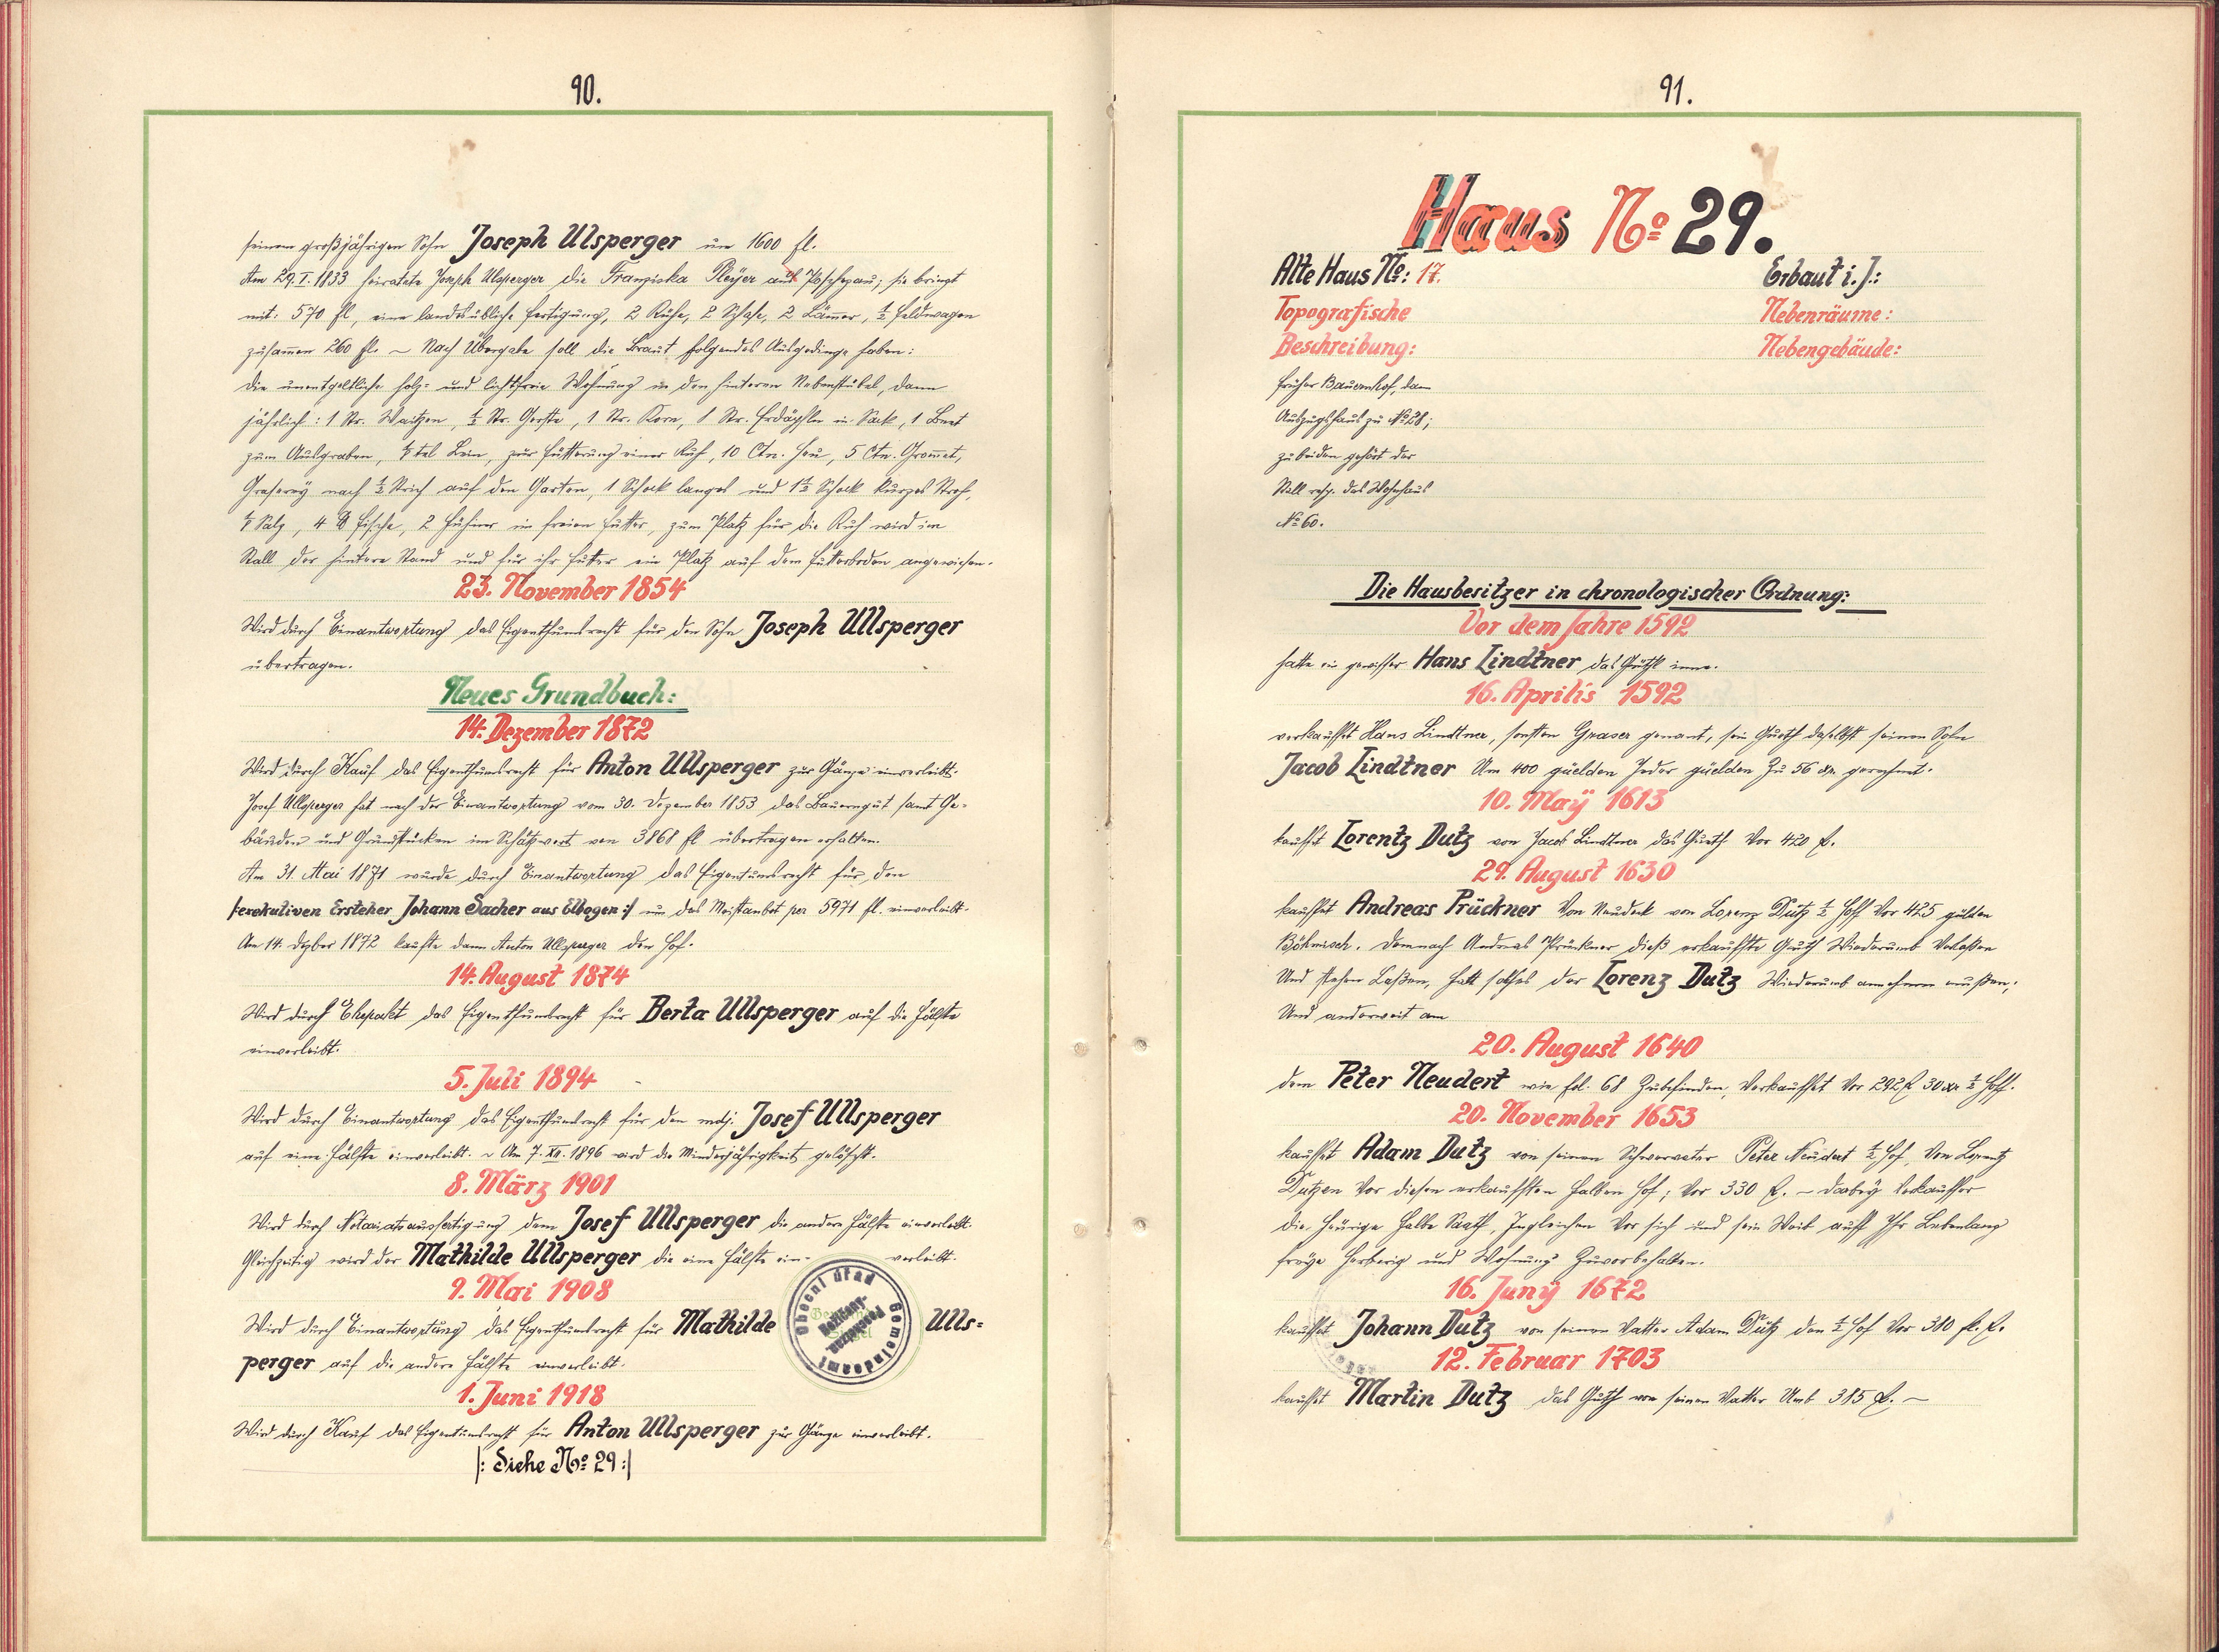 90.
seinem großjährigen Sohn Joseph Ulsperger um 1600 fl.
Am 29. I. 1833 heiratete Joseph Ulsperger die Franziska Pleyer aus Poschezau; sie bringt
mit: 570 fl, eine landesübliche Fertigung, 2 Kühe, 2 Schafe, 2 Lämmer, ½ Feldwagen
zusammen 260 fl. ~ Nach Übergabe soll die Braut folgendes Ausgedinge haben:
die unentgeltliche holz- und lichtfreie Wohnung in den hinteren Nebenstübel, dann
jährlich: 1 Str. Waitzen, ½ Str. Gerste, 1 Str. Korn, 1 Str. Erdäpfler in Sack, 1 Beet
zum Ausgraben, Lein, zur Fütterung einer Kuh, 10 Ctn. Heu, 5 Ctn. Grommet,
Graserey nach ½ Strich auf den Garten, 1 Schock langes und 1½ Schock kurzes Stroh,
Salz, 4 ℔ Fische, 2 Hühner in freien Futter, zum Platz für die Kuh wird im
Stall der hintere Stand und für ihr Futter ein Platz auf dem Futterboden angewiesen.
23. November 1854
Wird durch Einantwortung das Eigenthumsrecht für den Sohn Joseph Ullsperger
übertragen.
Neues Grundbuch:
14. Dezember 1872
Wird durch Kauf das Eigenthumsrecht für Anton Ullsperger zur Gänze einverleibt.
Josef Ullsperger hat nach der Einantwortung vom 30. Dezember 1853 das Bauerngut samt Ge-
bäuden und Grundstücken im Schätzwert von 3868 fl übertragen erhalten.
Am 31. Mai 1871 wurde durch Einantwortung das Eigentumsrecht für den
/:exekutiven Ersteher Johann Sacher aus Elbogen:/ um das Meistanbot per 5971 fl. einverleibt.
Am 14. Dezber 1872 kaufte dann Anton Ullsperger den Hof.
14. August 1874
Wird durch Ehepakt das Eigenthumsrecht für Berta Ullsperger auf die Hälfte
einverleibt.
5. Juli 1894
Wird durch Einantwortung das Eigenthumsrecht für den mdj. Josef Ullsperger
auf eine Hälfte einverleibt. ~ Am 7. XII. 1896 wird die Minderjährigkeit gelöscht.
8. März 1901
Wird durch Notariatsausfertigung dem Josef Ullsperger die andere Hälfte einverleibt.
Gleichzeitig wird der Mathilde Ullsperger die eine Hälfte ein- verleibt.
9. Mai 1908
Wird durch Einantwortung das Eigenthumsrecht für Mathilde Ulls-
perger auf die andere Hälfte einverleibt.
1. Juni 1918
Wird durch Kauf das Eigentumsrecht für Anton Ullsperger zur Gänze einverleibt.
|: Siehe No: 29 :|
Obecní úřad
Gemeindeamt
91.
Haus No: 29.
Alte Haus No: 17.
Erbaut i. J.:
Topografische
Nebenräume:
Beschreibung:
Nebengebäude:
früher Bauernhof, dann
Auszugshaus zu No 28;
zu beiden gehört der
Stall resp. das Wohnhaus
No 60.
Die Hausbesitzer in chronologischer Ordnung:
Vor dem Jahre 1592
hatte ein gewisser Hans Lindtner das Güthl inne.
16. Aprilis 1592
verkauffet Hans Lindtner, sonsten Graser genant, sein Gueth daselbst seinen Sohn
Jacob Lindtner Um 400 güelden Jeder güelden Zu 56 xr. gerechnet.
10. Maÿ 1613
kauffet Lorentz Dutz von Jacob Lindtner das Gueth Vor 420 f.
29. August 1630
kauffet Andreas Prückner Von Neudek von Lorenz Dutz ½ Hoff Vor 425 gülden
Böhmisch. Demnach Andreas Prückner dieß erkauffte Gueth Wiederumb Verlaßen
Und stehen Laßen, hatt solches der Lorenz Dutz Wiederumb annehmen müßen;
Und anderweit am
20. August 1640
dem Peter Neudert wie fol. 68 Zubefinden, Verkauffet Vor 292 f 30 xr ½ Hoff.
20. November 1653
kauffet Adam Dutz von seinen Schwervater Peter Neudert ½ Hof, Von Lorentz
Dutzen Vor diesen erkaufften halben Hof; Vor 330 f. ~ dabeÿ Verkauffer
die heürige halbe Saath, Ingleichen Vor sich und sein Weib auff Ihr Lebenlang
freÿe Herberig und Wohnung Zuvorbehalten.
16. Junÿ 1672
kauffet Johann Dutz von seinen Vatter Adam Dutz den ½ Hof Vor 380 f.
12. Februar 1703
kauffet Martin Dutz das Guth von seinen Vatter Umb 385 f. ~